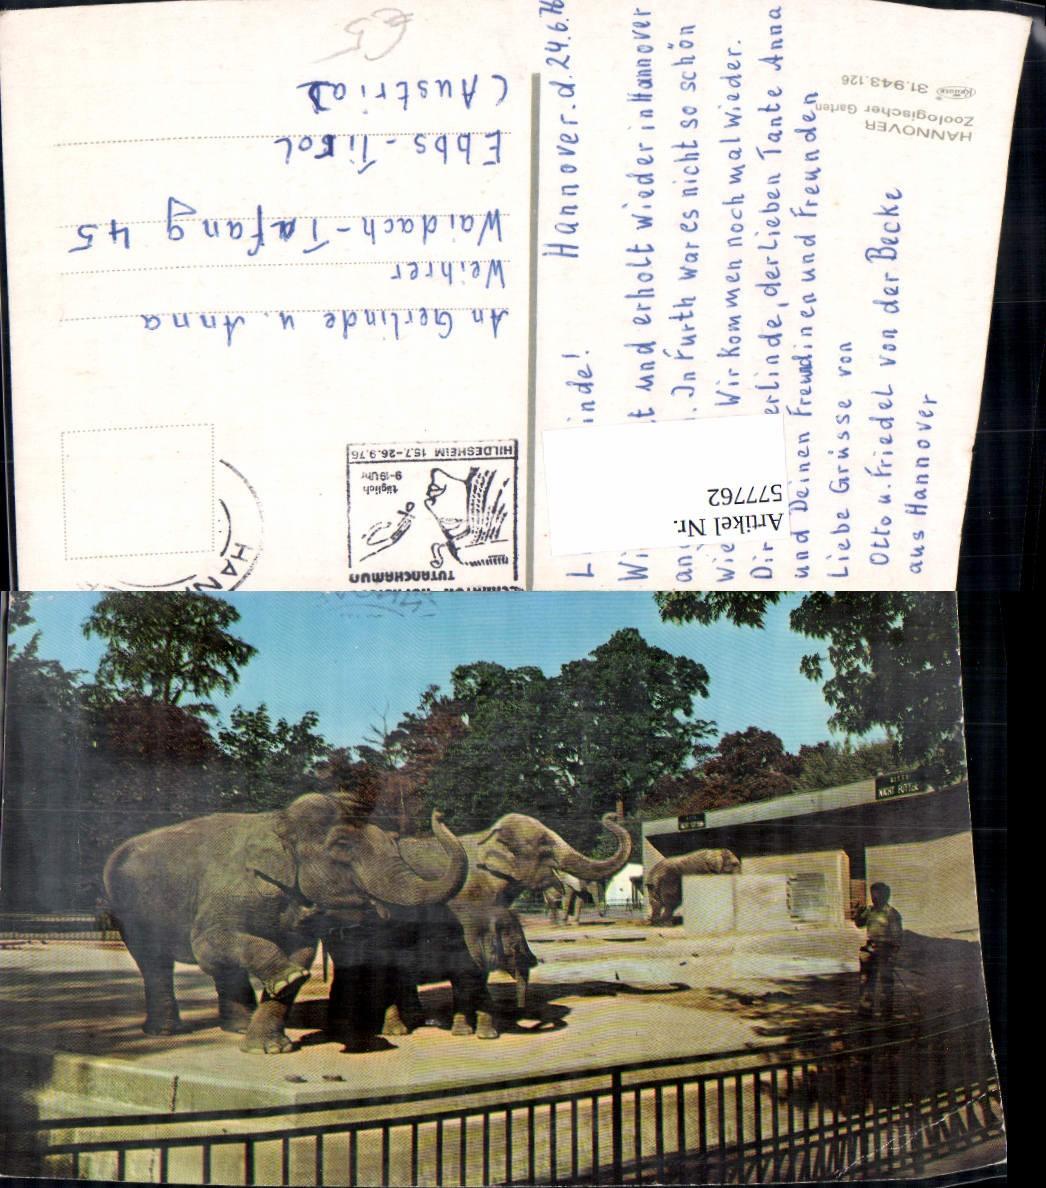 HANNOVER
Zoologischer Garten
Krüger 31.943.126
Hannover. d. 24.6.76
inde!
und erholt wieder in Hannover
In Furth war es nicht so schön
Wir kommen noch mal wieder.
Dir erlinde, der lieben Tante Anna
und Deinen Freundinen und Freunden
Liebe Grüsse von
Otto u. Friedel von der Becke
aus Hannover
Artikel Nr.
577762
TUTANCHAMUN
täglich
9-19 Uhr
HILDESHEIM 15.7.-26.9.76
HAN
An Gerlinde u. Anna
Weihrer
Waidach-Tafang 45
Ebbs-Tirol
(Austria)
BITTE
NICHT FÜTTERN